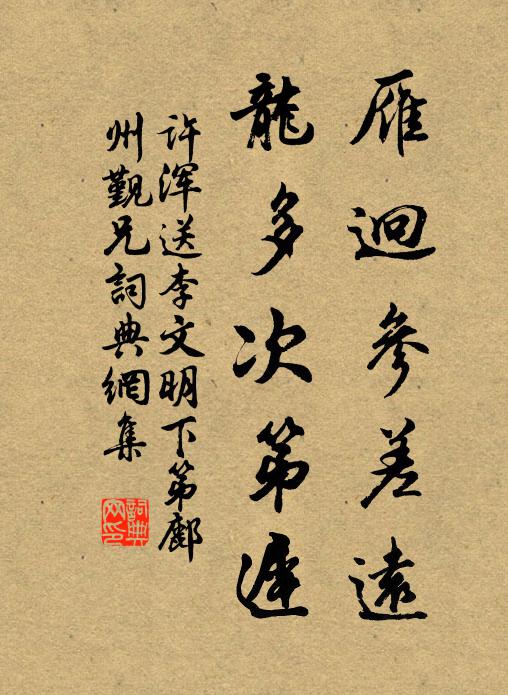 雁迴參差遠
龍多次第遲
許渾送李文明下第鄜
州覲兄詞典網集
詞典
网印